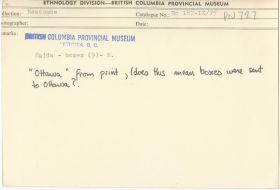 ETHNOLOGY DIVISION—BRITISH COLUMBIA PROVINCIAL MUSEUM
ollection: Newcombe Catalogue No. PN 727
hotographer: Date:
marks:
BRITISH COLUMBIA PROVINCIAL MUSEUM
VICTORIA, B.C.
Haida - boxes (9)- N.
"Ottawa" from print, (does this mean boxes were sent
to Ottawa?.